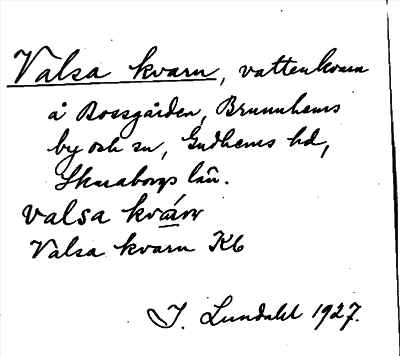 Valsa kvarn, vattenkvarn
å Bossgården, Brunnhems
by och sn, Gudhems hd,
Skaraborgs län.
valsa kvárn
Valsa kvarn K6
I. Lundahl 1927.